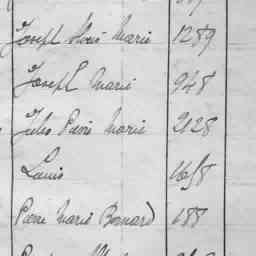 Joseph Marie 1289
Joseph Marie 948
Jules Pierre Marie 2128
Louis 1658
Pierre Marie Bernard 188